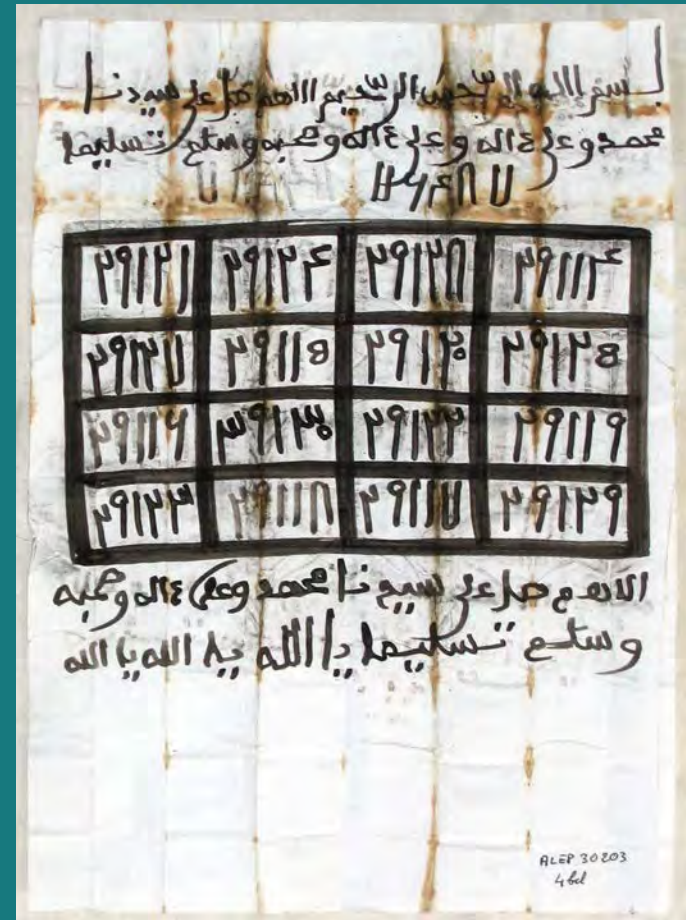 بسم الله الرحمن الرحيم اللهم صل على سيدنا
محمد وعلى ءاله وعلى ءاله وصحبه وسلم تسليما
١١٦٤٨٧
٢٩١١٤ ٢٩١٢٨ ٢٩١٢٤ ٢٩١٢١
٢٩١٢٥ ٢٩١٢٠ ٢٩١١٥ ٢٩١٢٧
٢٩١١٩ ٢٩١٢٢ ٣٩١٣٠ ٢٩١١٦
٢٩١٢٩ ٢٩١١٧ ٢٩١١٨ ٢٩١٢٣
اللهم صل على سيدنا محمد وعلى ءاله وصحبه
وسلم تسليما يا الله يا الله يا الله
ALEP 30203